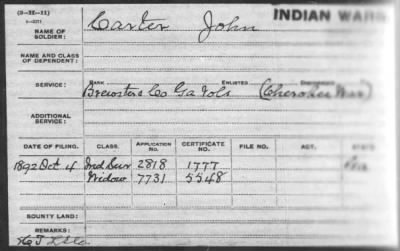 (3-H-11) INDIAN WARS
NAME OF SOLDIER: Carter John
NAME AND CLASS OF DEPENDENT:
RANK ENLISTED DISCHARGED
SERVICE: Brewsters Co Ga Vols (Cherokee War)
ADDITIONAL SERVICE:
DATE OF FILING. CLASS. APPLICATION NO. CERTIFICATE NO. FILE NO. ACT. STATE
1892 Oct 4 Ind Sur 2818 1777
Widow 7731 5548
BOUNTY LAND:
REMARKS: